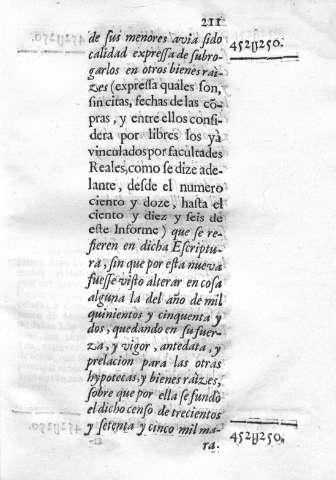 211
de sus menores avia sido
calidad expressa de subro-
garlos en otros bienes rai-
zes (expressa quales son,
sin citas, fechas de las cõ-
pras, y entre ellos consi-
dera por libres los yà
vinculados por facultades
Reales, como se dize ade-
lante, desde el numero
ciento y doze, hasta el
ciento y diez y seis de
este Informe) que se re-
fieren en dicha Escriptu-
ra, sin que por esta nueva
fuesse visto alterar en cosa
alguna la del año de mil
quinientos y cinquenta y
dos, quedando en su fuer-
za, y vigor, antedata, y
prelacion para las otras
hypotecas, y bienes raizes,
sobre que por ella se fundò
el dicho censo de trecientos
y setenta y cinco mil ma-
ra.
452ɥ250.
452ɥ250.